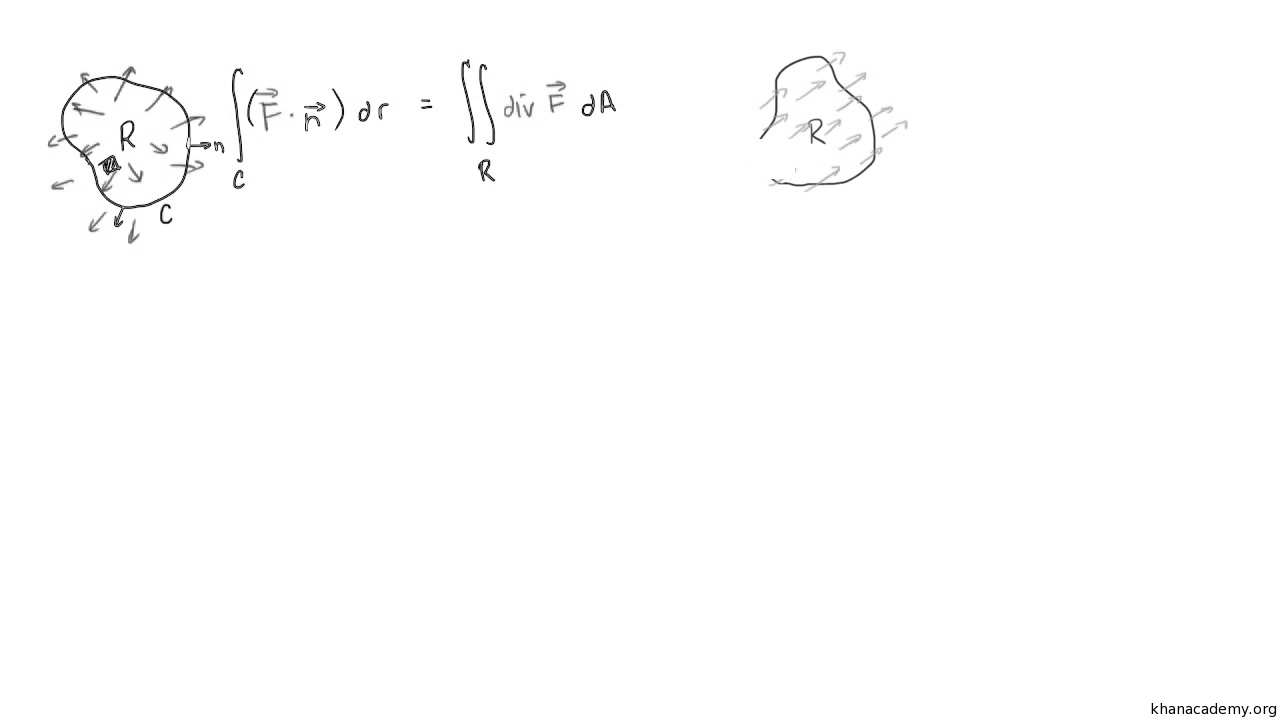 R
n
C
∫ (F⃗ · n⃗) dr = ∬ div F⃗ dA
C R
R
khanacademy.org